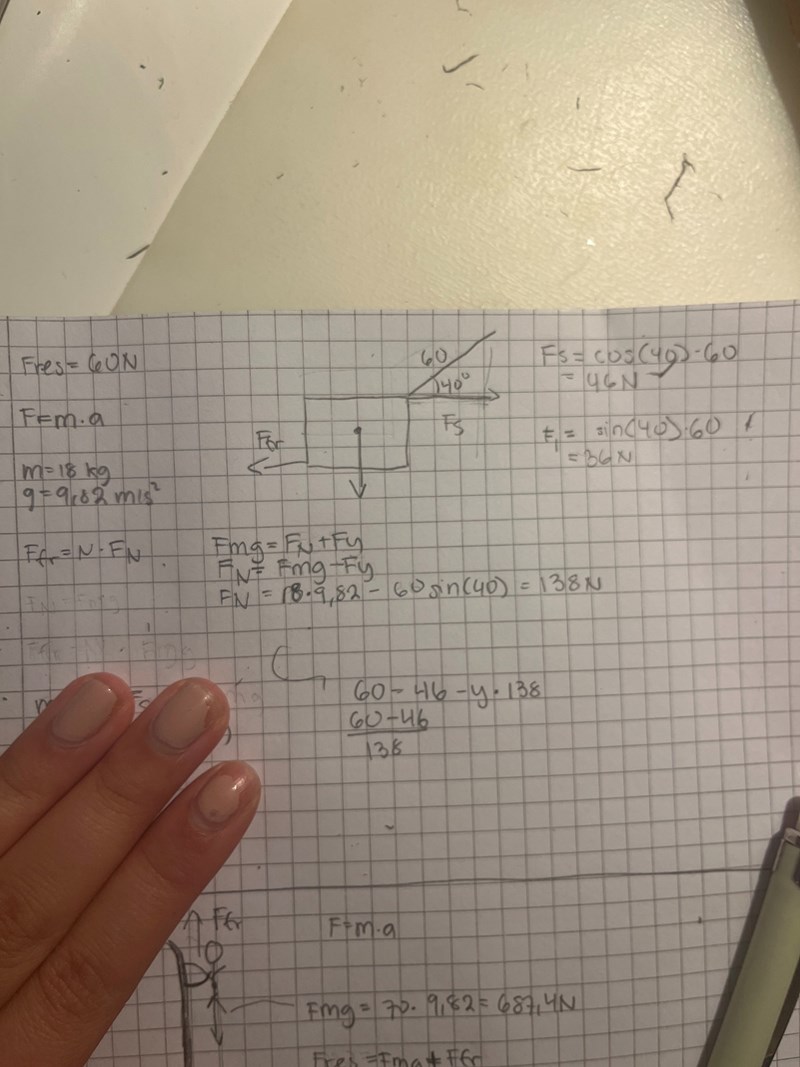 Fres = 60N
F=m·a
m=18 kg
g=9,82 m/s²
Ffr = N · FN
60
40°
Fs
Ffr
Fs = cos(40)·60
= 46N
sin(40)·60
= 36N
Fmg = FN + Fy
FN = Fmg - Fy
FN = 18·9,82 - 60 sin(40) = 138N
60 - 46 - y · 138
60-46
138
Ffr
F=m·a
Fmg = 70 · 9,82 = 687,4N
Fres = Fmg + Ffr